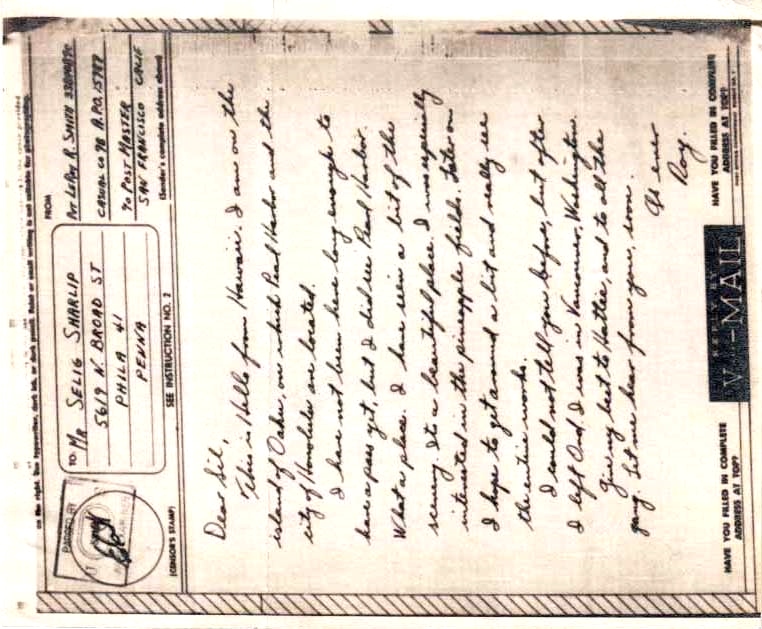 on the right. Use typewriter, dark ink, or dark pencil. Faint or small writing is not suitable for photographing.
PASSED BY
(CENSOR'S STAMP)
TO:
Mr SELIG SHARLIP
5619 N. BROAD ST
PHILA 41
PENNA
SEE INSTRUCTION NO. 2
FROM
Pvt LeRoy R. SMITH
CASUAL CO 98 A.P.O. 15787
℅ POST MASTER
SAN FRANCISCO CALIF
(Sender's complete address above)
Dear Sil,
This is Hello from Hawaii. I am on the
island of Oahu, on which Pearl Harbor and the
city of Honolulu are located.
I have not been here long enough to
have a pass yet, but I did see Pearl Harbor.
What a place. I have seen a bit of the
scenery. It's a beautiful place. I was especially
interested in the pineapple fields. Later on
I hope to get around a bit and really see
the entire works.
I could not tell you before, but after
I left Ord, I was in Vancouver, Washington.
Give my best to Hattie, and to all the
gang. Let me hear from you, soon.
As ever
Roy.
HAVE YOU FILLED IN COMPLETE
ADDRESS AT TOP?
REPLY BY
V-MAIL
HAVE YOU FILLED IN COMPLETE
ADDRESS AT TOP?